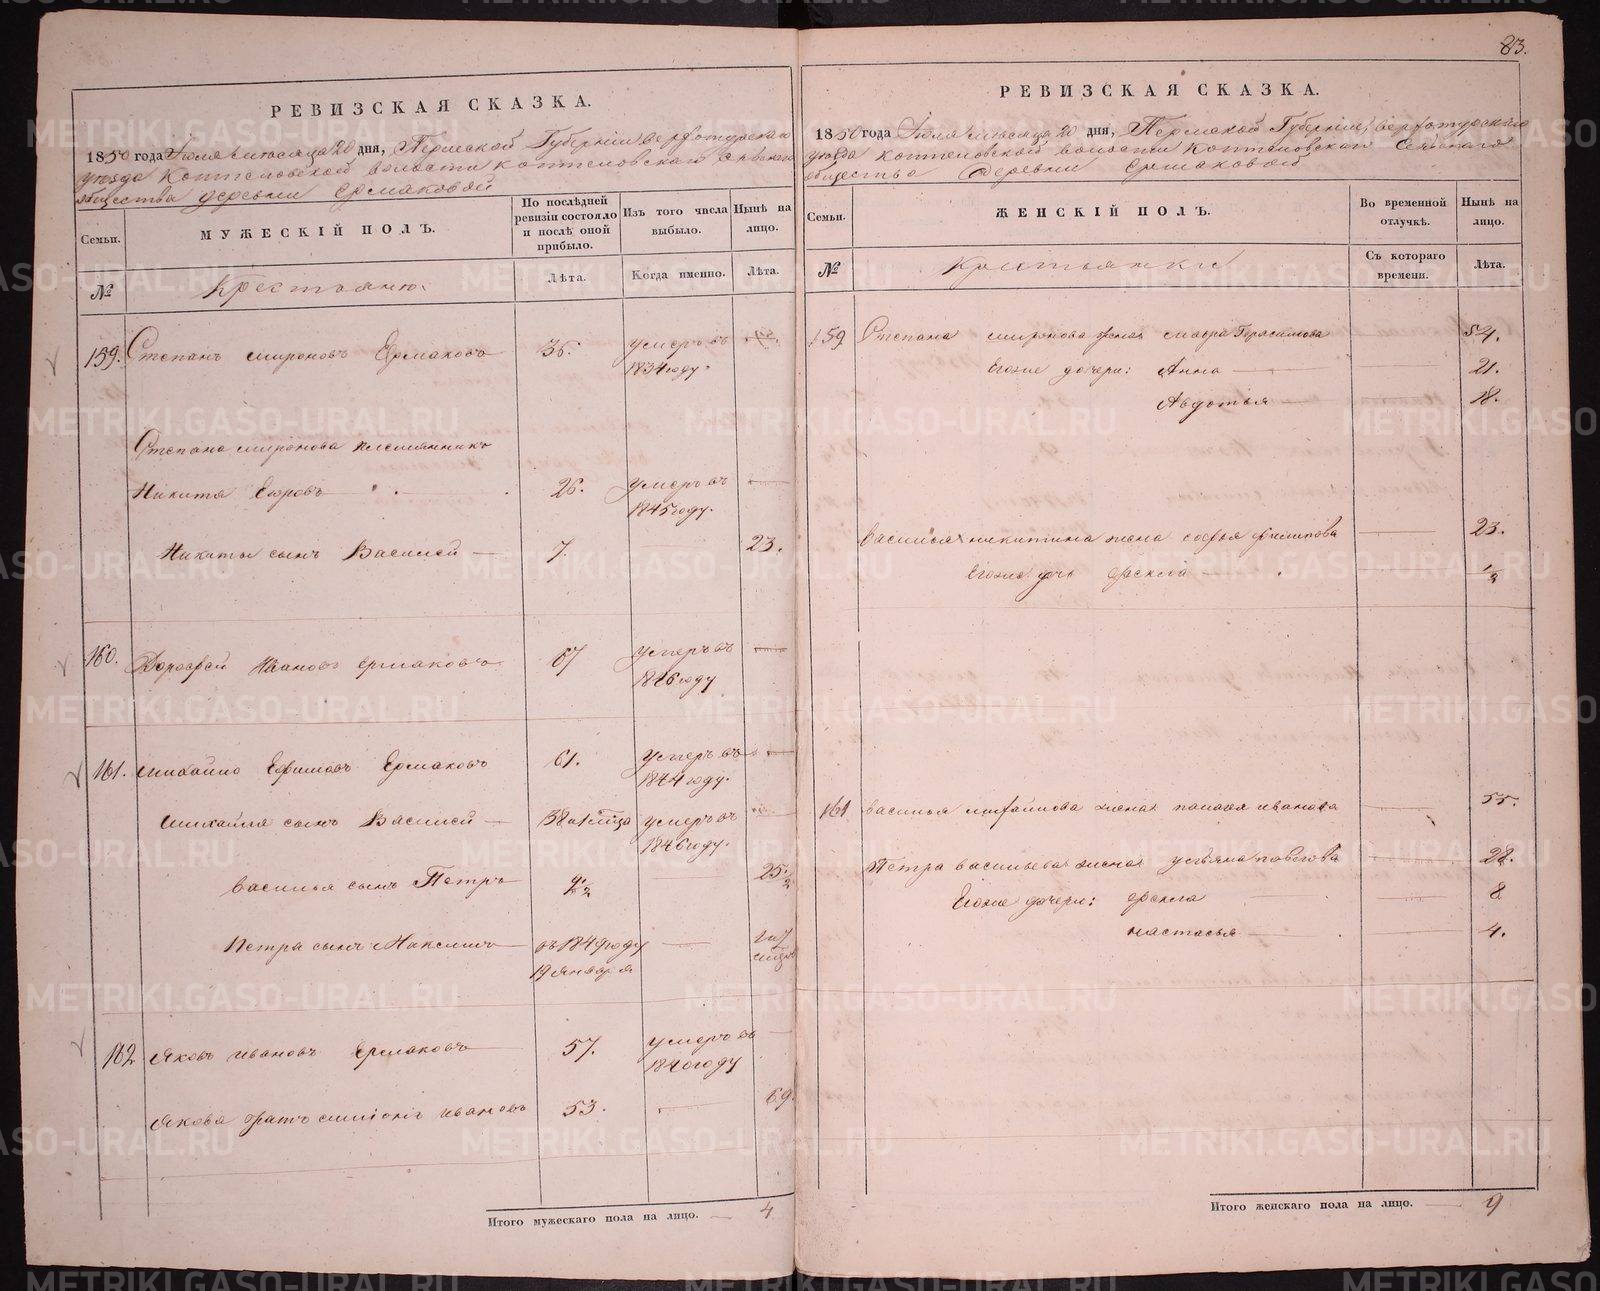 83.
РЕВИЗСКАЯ СКАЗКА.
1850 года Июля месяца 20 дня, Пермской Губерніи верхотурскаго
уезда Коптеловской волости Коптеловскаго Сельскаго
общества деревни Ермаковой
Семьи.
МУЖЕСКІЙ ПОЛЪ.
По послѣдней ревизіи состояло и послѣ оной прибыло.
Изъ того числа выбыло.
Нынѣ на лицо.
№
Крестьяне.
Лѣта.
Когда именно.
Лѣта.
159. Степанъ мироновъ Ермаковъ 36. умеръ въ
1834 году.
Степана миронова племянникъ
Никита Егоровъ 26. умеръ въ
1845 году.
Никиты сынъ Василей 7. 23.
160. Дорофей Ивановъ ермаковъ 67 умеръ въ
1846 году
161. михайло Ефимовъ Ермаковъ 61. умеръ въ
1844 году.
михайла сынъ Василей 38 умеръ въ
1846 году.
василья сынъ Петръ 9 1/2 25 1/2
Петра сынъ Максимъ въ 1849 году
19 января
162 Яковъ ивановъ Ермаковъ 57. умеръ въ
1840 году
Якова братъ ивановъ 53. 69.
Итого мужескаго пола на лицо. 4
РЕВИЗСКАЯ СКАЗКА.
1850 года Июля месяца 20 дня, Пермской Губерніи, верхотурскаго
уезда Коптеловской волости Коптеловскаго Сельскаго
общества деревни Ермаковой
Семьи.
ЖЕНСКІЙ ПОЛЪ.
Во временной отлучкѣ.
Нынѣ на лицо.
№
Крестьянки
Съ котораго времени.
Лѣта.
159 Степана миронова жена мавра Герасимова 54.
Егоже дочери: Анна 21.
Авдотья 18.
Василья никитина жена софья филипова 23.
Егоже дочь фекла 1/2
161 василья михайлова жена палагея иванова 55.
Петра васильева жена ульяна 28.
Егоже дочери: фекла 8
настасья 4.
Итого женскаго пола на лицо. 9
METRIKI.GASO-URAL.RU